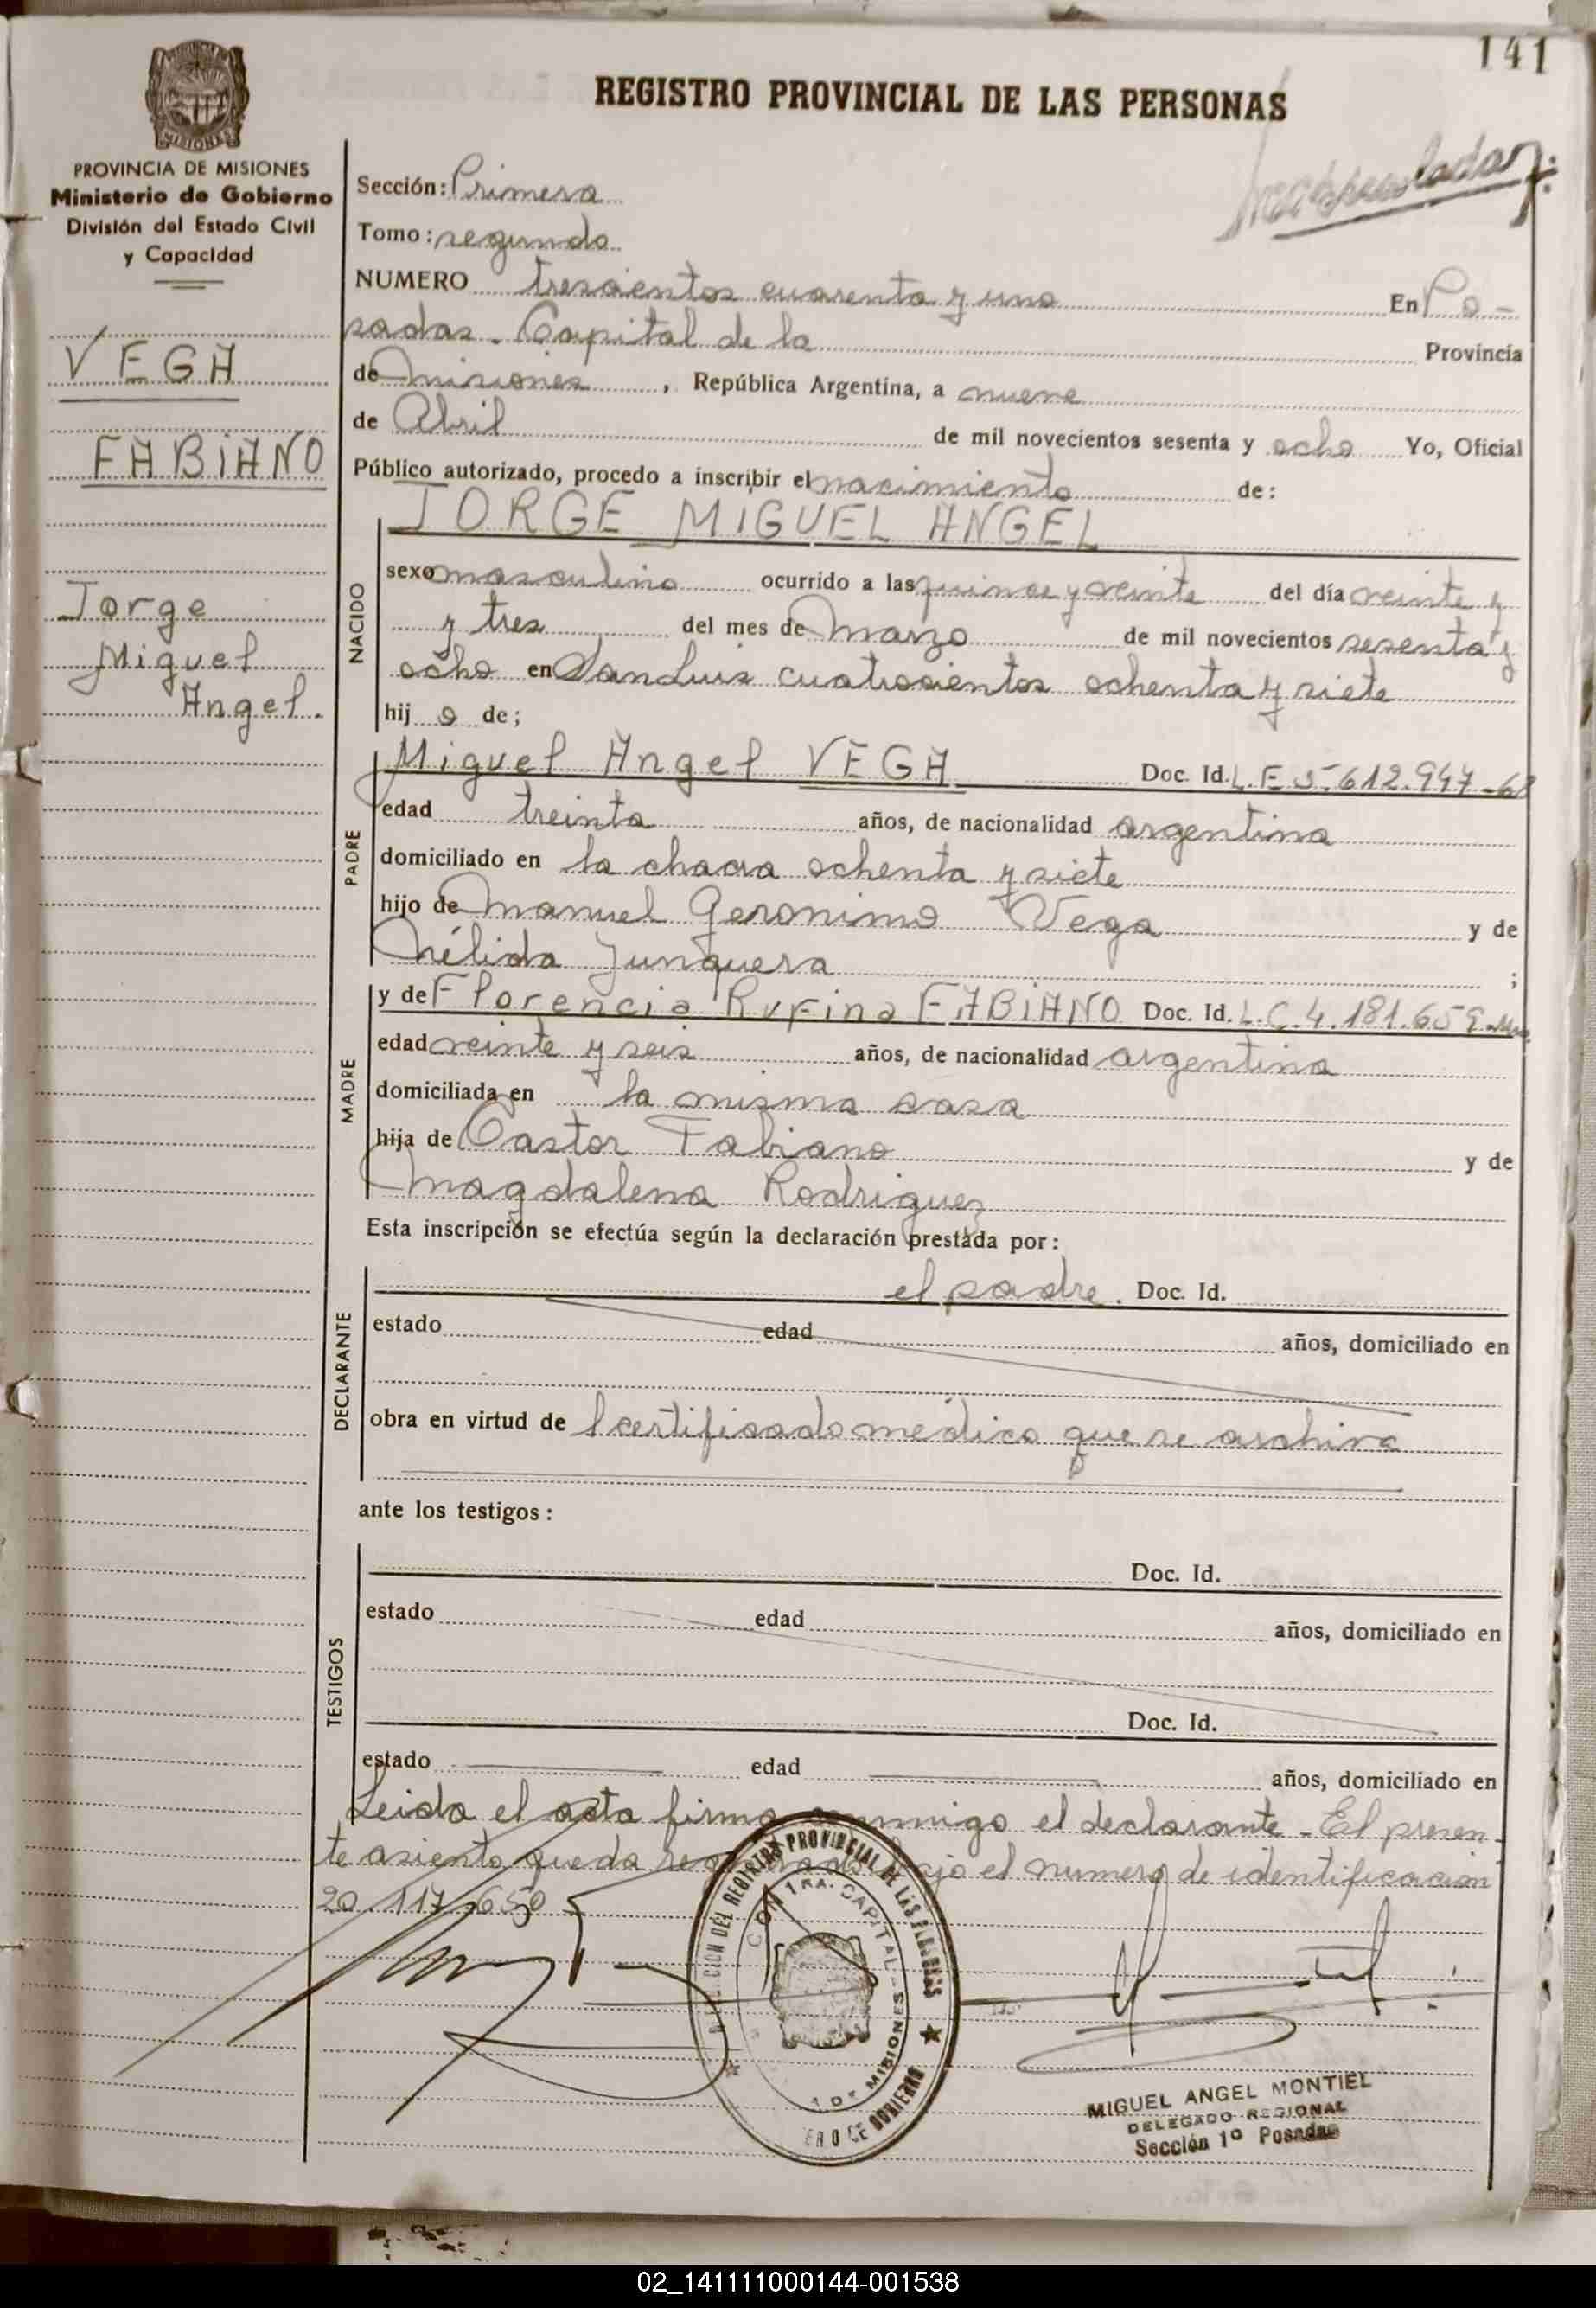 141
REGISTRO PROVINCIAL DE LAS PERSONAS
PROVINCIA DE MISIONES
Ministerio de Gobierno
División del Estado Civil
y Capacidad
VEGA
FABIANO
Jorge
Miguel
Angel.
Sección: Primera
Tomo: segundo
NUMERO trescientos cuarenta y uno En Po-
sadas. Capital de la Provincia
de misiones, República Argentina, a nueve
de Abril de mil novecientos sesenta y ocho Yo, Oficial
Público autorizado, procedo a inscribir el nacimiento de:
NACIDO
JORGE MIGUEL ANGEL
sexo masculino ocurrido a las quince y veinte del día veinte y
y tres del mes de Marzo de mil novecientos sesenta y
ocho en San Luis cuatrocientos ochenta y siete
hijo de;
PADRE
Miguel Angel VEGA Doc. Id. L.E 5.612.947-
edad treinta años, de nacionalidad argentina
domiciliado en la chacra ochenta y siete
hijo de Manuel Geronimo Vega y de
Nélida Junquera ;
MADRE
y de Florencia Rufina FABIANO Doc. Id. L.C.4.181.659
edad veinte y seis años, de nacionalidad argentina
domiciliada en la misma casa
hija de Castor Fabiano y de
Magdalena Rodriguez
Esta inscripción se efectúa según la declaración prestada por:
DECLARANTE
el padre. Doc. Id.
estado edad años, domiciliado en
obra en virtud de l certificado médico que se archiva
ante los testigos:
TESTIGOS
Doc. Id.
estado edad años, domiciliado en
Doc. Id.
estado edad años, domiciliado en
Leida el acta firma conmigo el declarante - El presen-
te asiento queda bajo el numero de identificación
20.117.650
MIGUEL ANGEL MONTIEL
DELEGADO REGIONAL
Sección 1º Posadas
02_141111000144-001538